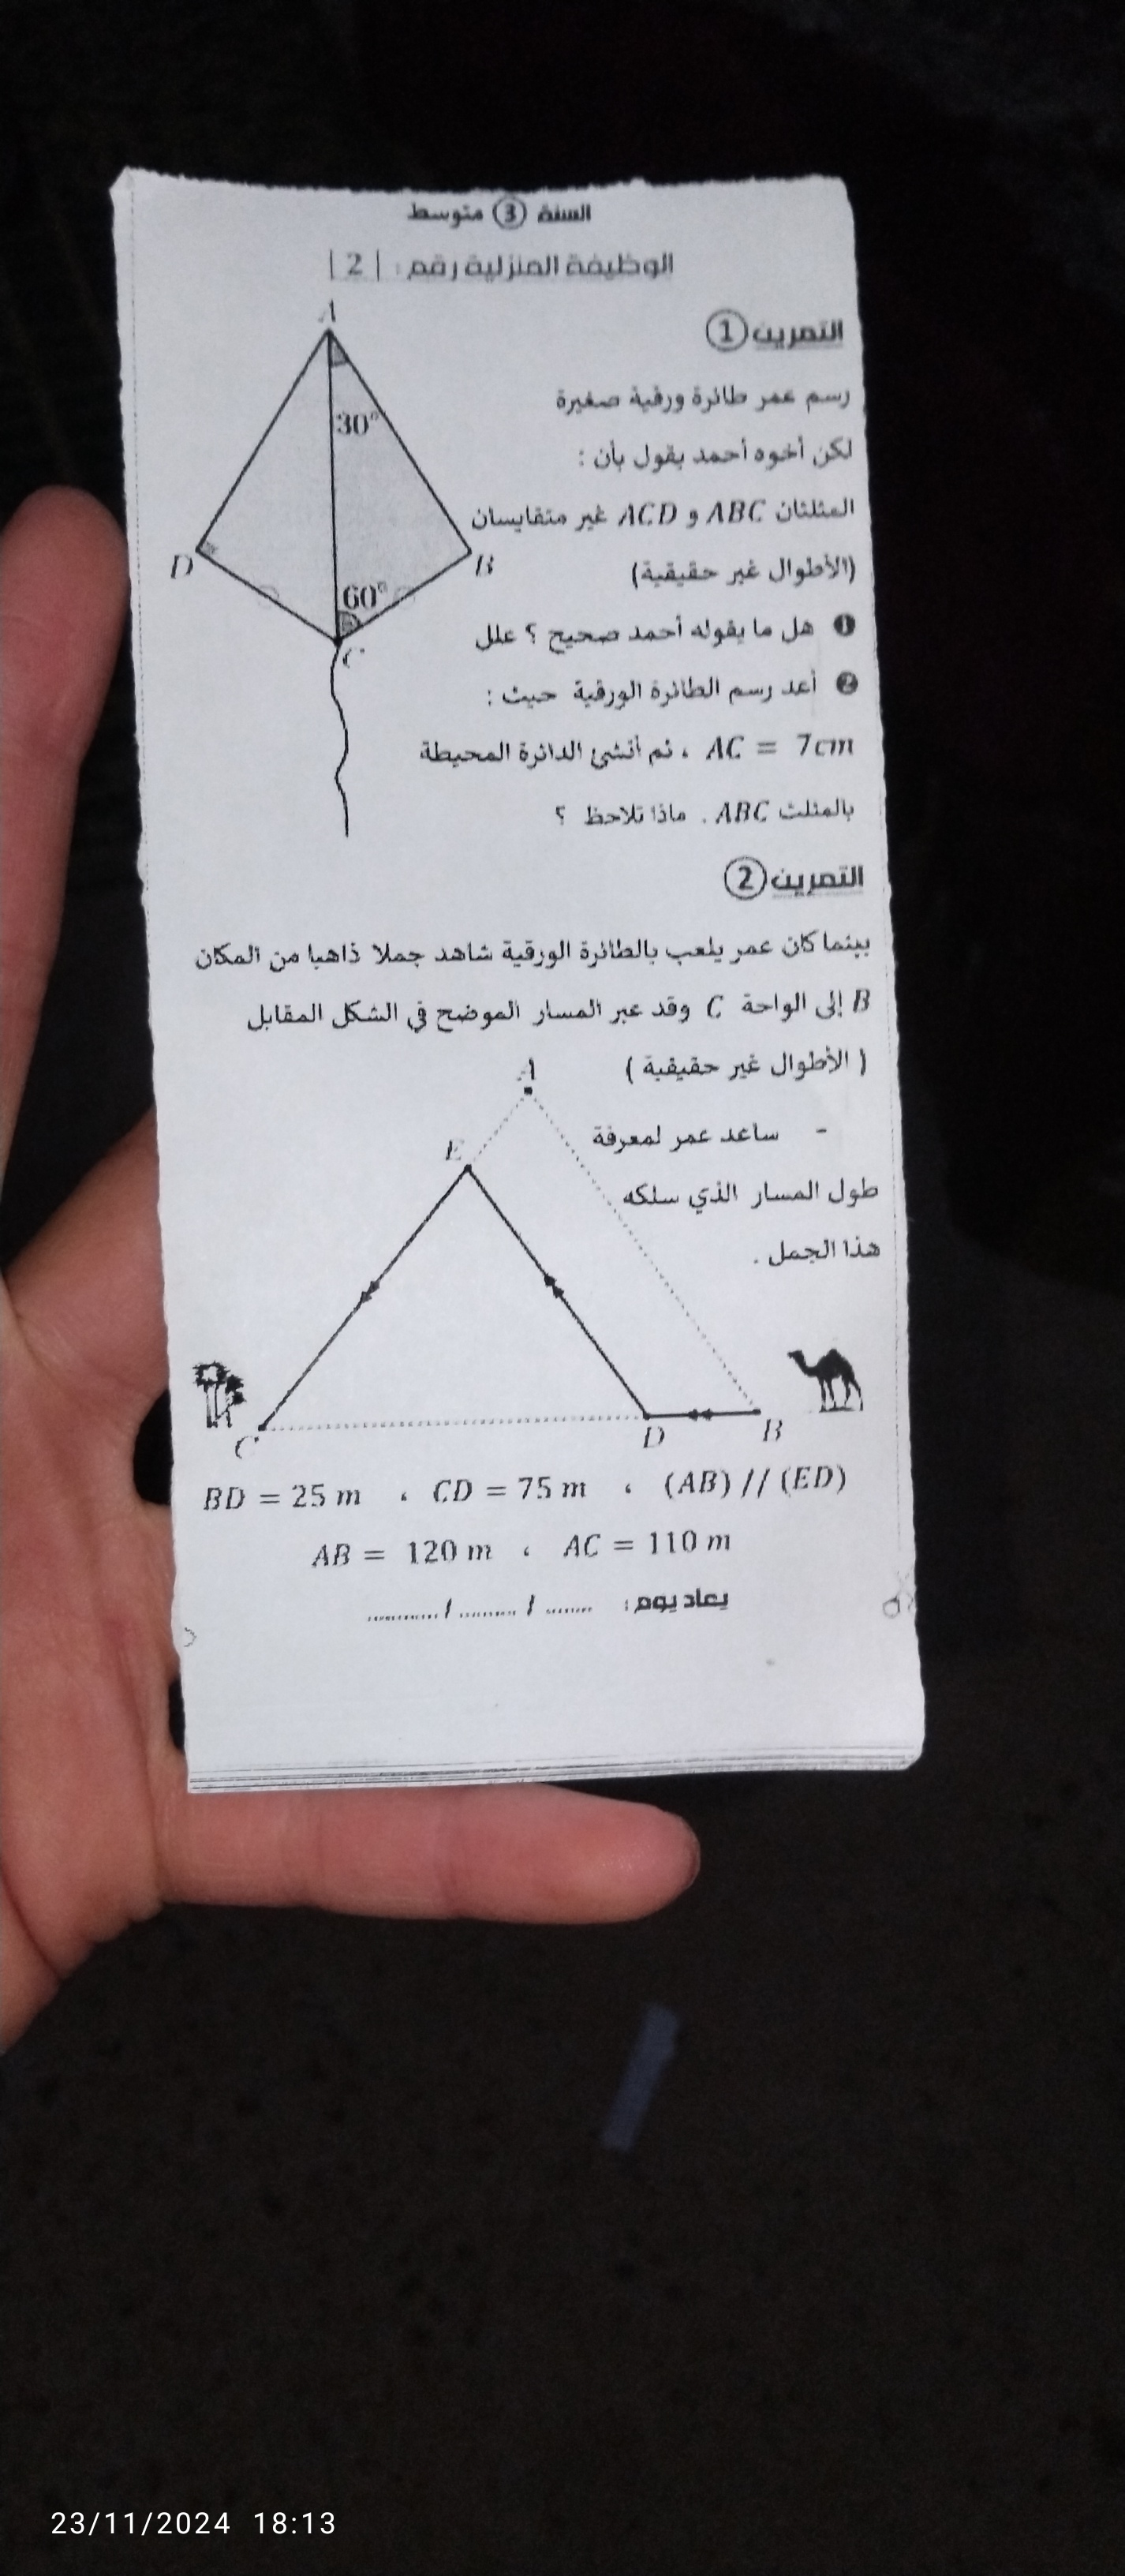 السنة 3 متوسط
الوظيفة المنزلية رقم : | 2 |
التمرين 1
رسم عمر طائرة ورقية صغيرة
لكن أخوه أحمد يقول بأن :
المثلثان ABC و ACD غير متقايسان
(الأطوال غير حقيقية)
1 هل ما يقوله أحمد صحيح ؟ علل
2 أعد رسم الطائرة الورقية حيث :
AC = 7cm ، ثم أنشئ الدائرة المحيطة
بالمثلث ABC . ماذا تلاحظ ؟
A
30°
D
B
60°
C
التمرين 2
بينما كان عمر يلعب بالطائرة الورقية شاهد جملا ذاهبا من المكان
B إلى الواحة C وقد عبر المسار الموضح في الشكل المقابل
( الأطوال غير حقيقية )
- ساعد عمر لمعرفة
طول المسار الذي سلكه
هذا الجمل .
A
E
C
D
B
BD = 25 m ، CD = 75 m ، (AB) // (ED)
AB = 120 m ، AC = 110 m
يعاد يوم : ....... / ......... / ...........
23/11/2024 18:13